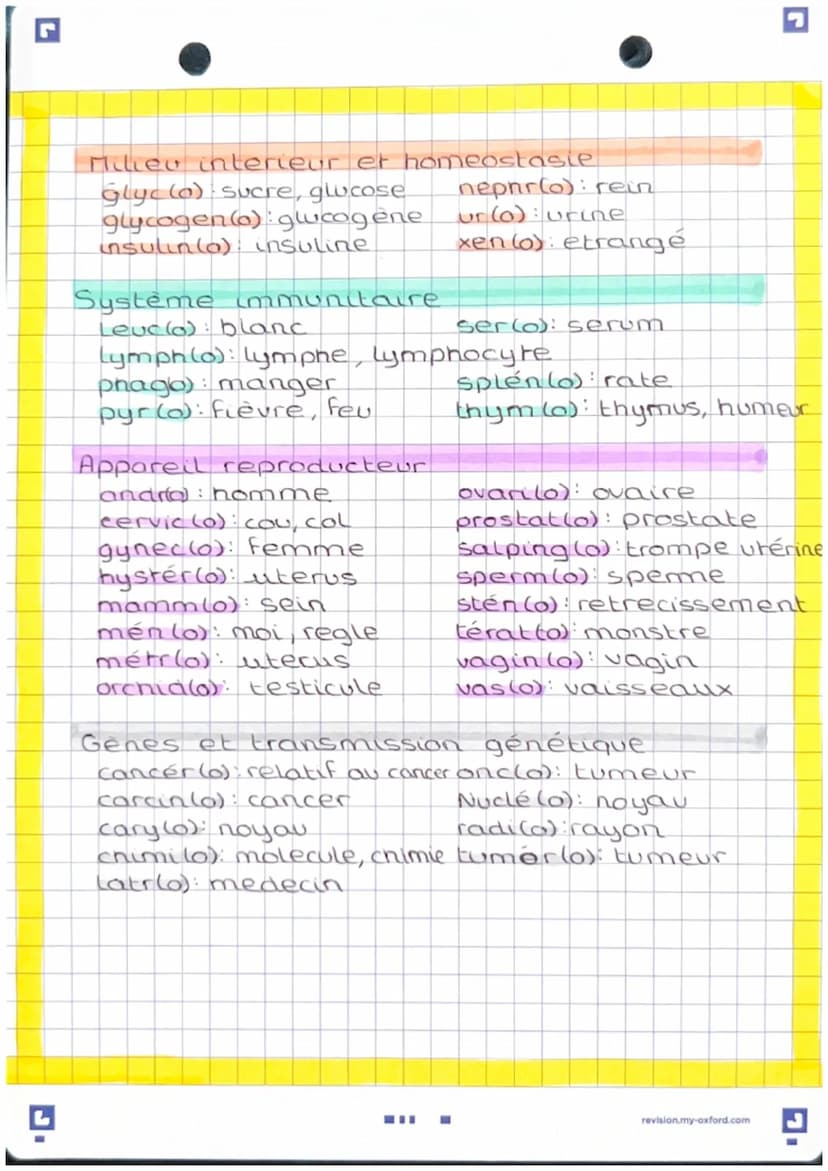 Milieu interieur et homeostasie
glyc(o) : sucre, glucose nephr(o) : rein
glycogen(o) : glucogène ur(o) : urine
insulin(o) : insuline xen(o) : etrangé
Système immunitaire
Leuc(o) : blanc ser(o) : serum
Lymph(o) : lymphe, lymphocyte
phag(o) : manger splén(o) : rate
pyr(o) : fièvre, feu thym(o) : thymus, humeur
Appareil reproducteur
andr(o) : homme ovari(o) : ovaire
cervic(o) : cou, col prostat(o) : prostate
gynec(o) : femme salping(o) : trompe utérine
hystér(o) : uterus sperm(o) : sperme
mamm(o) : sein stén(o) : retrecissement
mén(o) : moi, regle térat(o) : monstre
métr(o) : uterus vagin(o) : vagin
orchid(o) : testicule vas(o) : vaisseaux
Gènes et transmission génétique
cancér(o) : relatif au cancer onc(o) : tumeur
carcin(o) : cancer Nuclé(o) : noyau
cary(o) : noyau radi(o) : rayon
chimi(o) : molecule, chimie tumor(o) : tumeur
Iatr(o) : medecin
revision.my-oxford.com